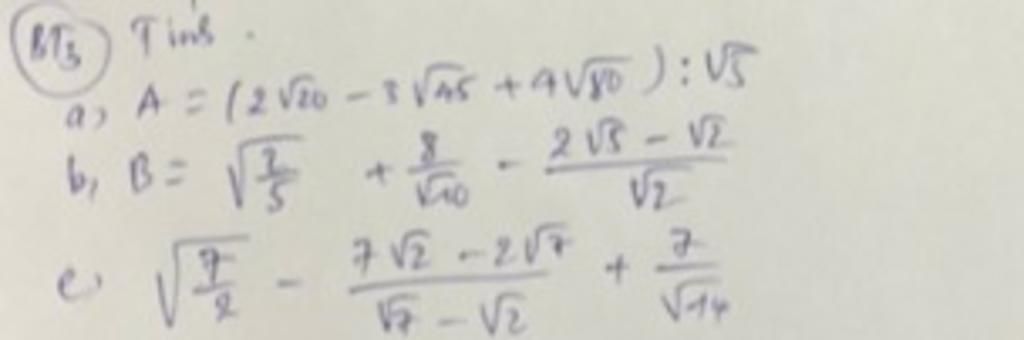 BT3 Tính.
a, A = (2√20 - 3√45 + 4√80) : √5
b, B = √(2/5) + 8/√10 - (2√5 - √2)/√2
c, √(7/2) - (7√2 - 2√7)/(√7 - √2) + 7/√14